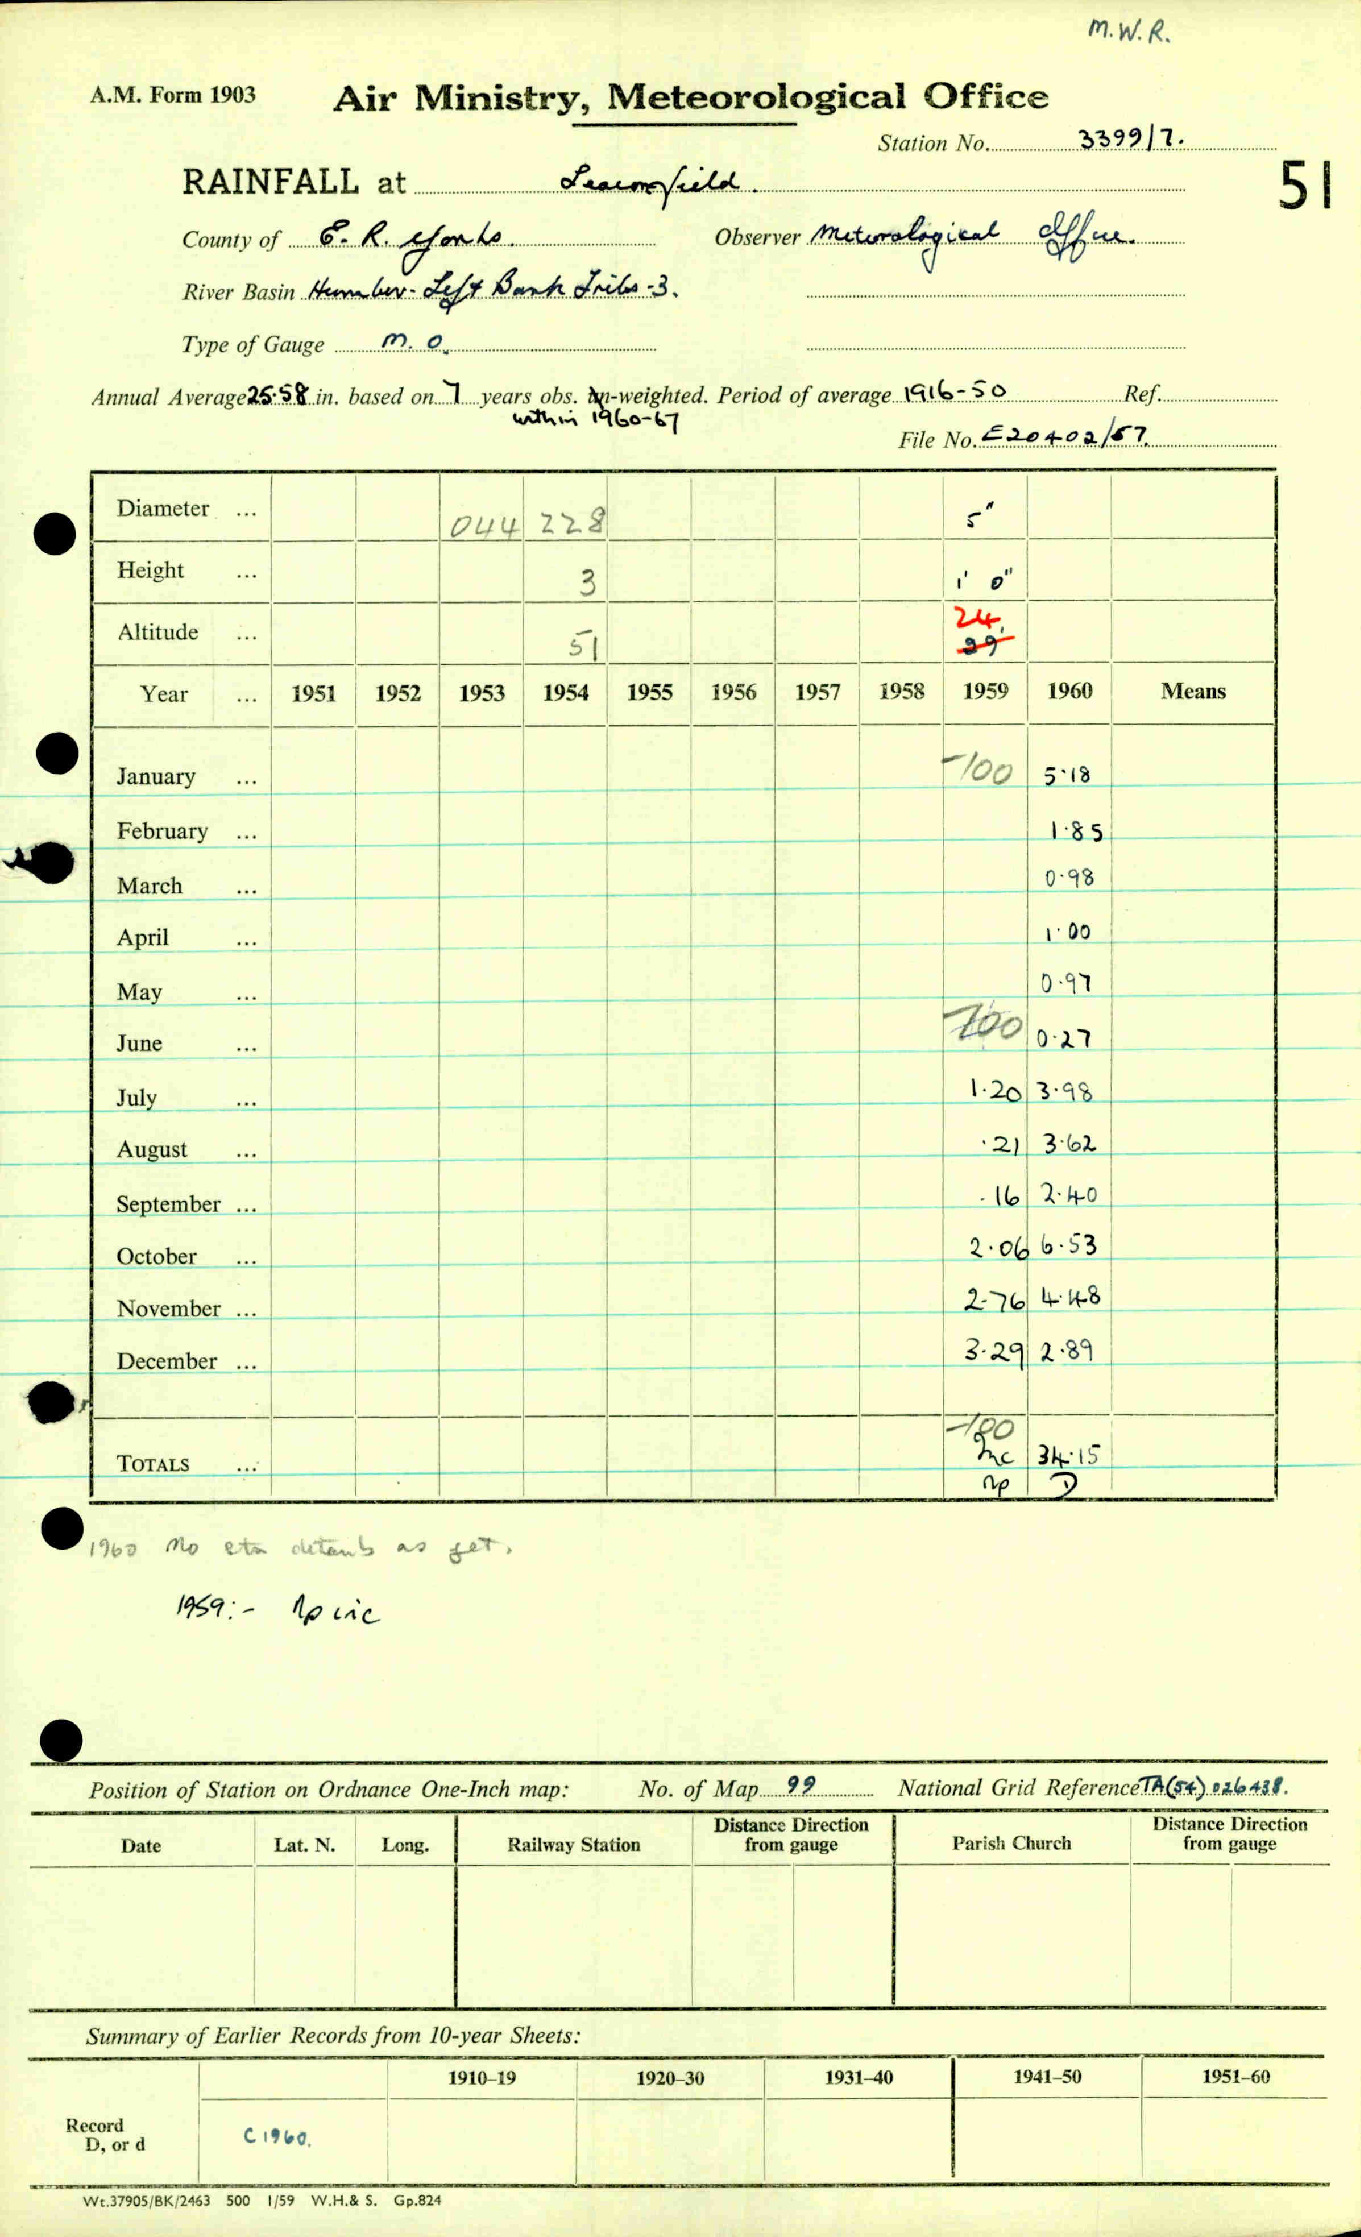 M.W.R.
A.M. Form 1903 Air Ministry, Meteorological Office
Station No. 3399/7.
RAINFALL at Leconfield. 51
County of E. R. Yorks. Observer Meteorological Office.
River Basin Humber - Left Bank Tribs -3.
Type of Gauge M. O.
Annual Average 25.58 in. based on 7 years obs. un-weighted. Period of average 1916-50 Ref.
within 1960-67
File No. E20402/57
Diameter ... 044 228 5"
Height ... 3 1' 0"
24
Altitude ... 51
Year ... 1951 1952 1953 1954 1955 1956 1957 1958 1959 1960 Means
January ... -100 5.18
February ... 1.85
March ... 0.98
April ... 1.00
May ... 0.97
June ... -100 0.27
July ... 1.20 3.98
August ... .21 3.62
September ... .16 2.40
October ... 2.06 6.53
November ... 2.76 4.48
December ... 3.29 2.89
-100
TOTALS ... Inc 34.15
np D
1960 No etc details as yet.
1959:- np inc
Position of Station on Ordnance One-Inch map: No. of Map 99 National Grid Reference TA(54) 026438.
Date Lat. N. Long. Railway Station Distance Direction from gauge Parish Church Distance Direction from gauge
Summary of Earlier Records from 10-year Sheets:
1910-19 1920-30 1931-40 1941-50 1951-60
Record
D, or d C 1960.
Wt.37905/BK/2463 500 1/59 W.H.& S. Gp.824